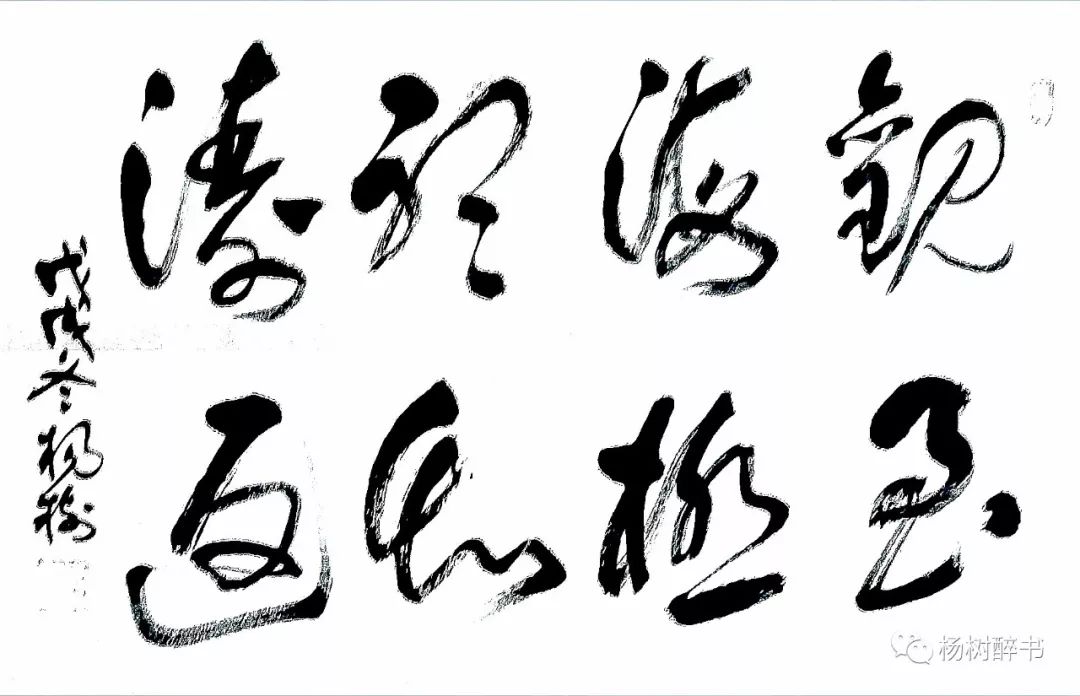 觀海聽濤
至極知返
戊戌冬楊樹
杨树醉书